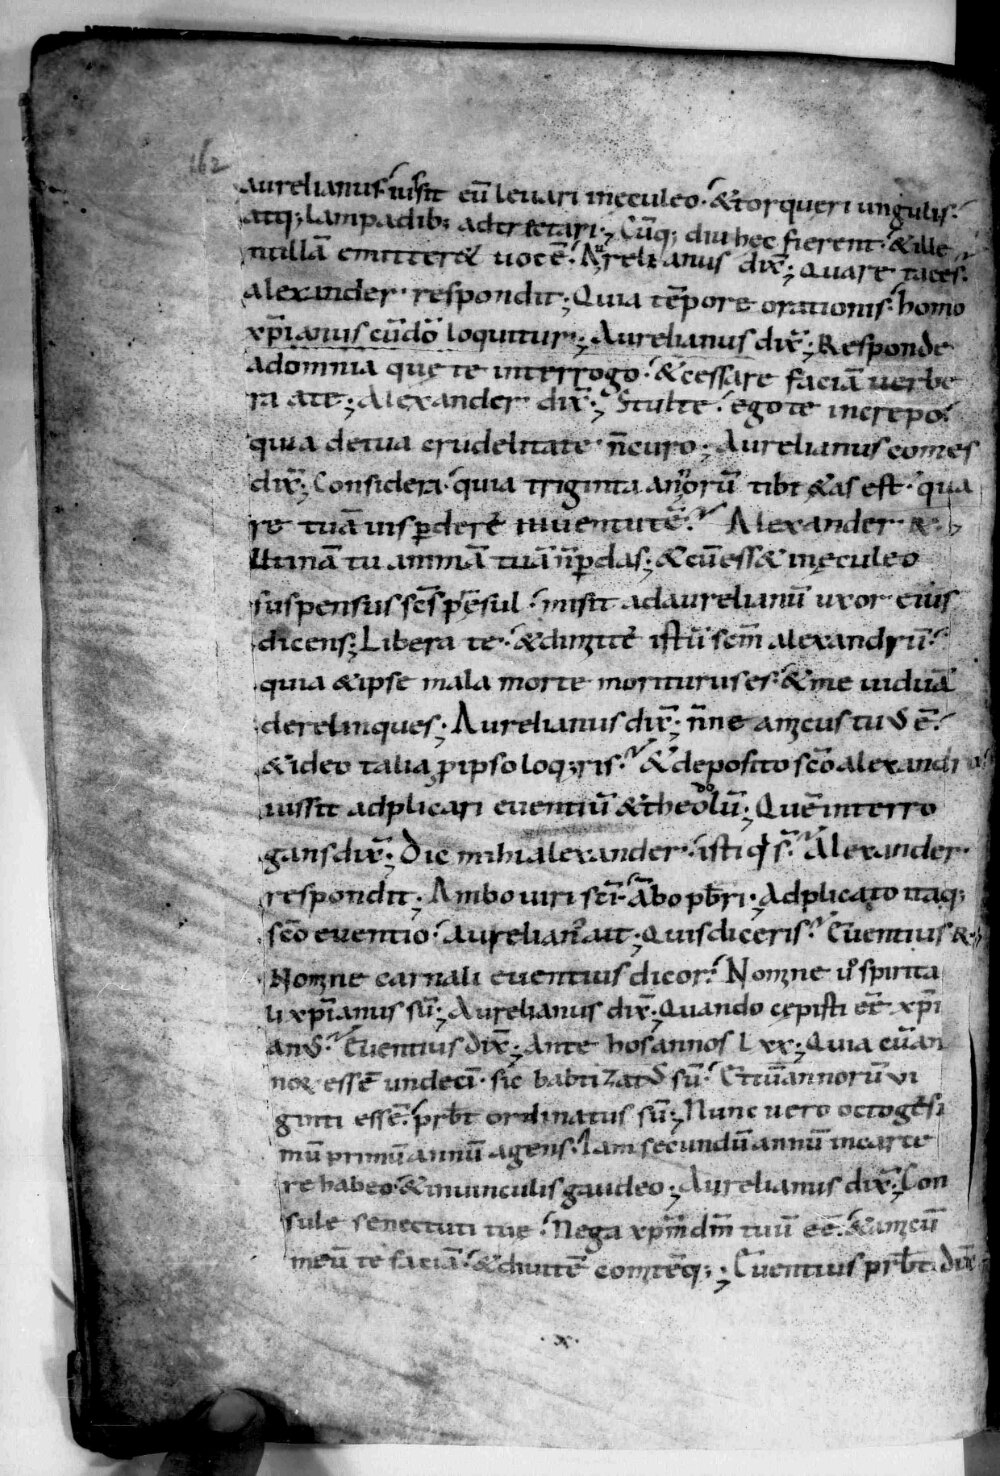 162
aurelianus iussit eū leuari inęculeo · & torqueri ungulis ·
atq; lampadib; adtrectari ; Cūq; diu hec fierent · & ille
nullā emitteret uocē · Aurelianus dix̄ ; Quare taces ·
alexander · respondit ; Quia tēpore orationis · homo
xp̄ianus cū dō loquitur ; Aurelianus dix̄ ; Responde
adomnia que te interrogo · & cessare faciā uerbe
ra ate ; Alexander dix̄ ; Stulte · ego te increpo ·
quia detua crudelitate n̄ curo ; Aurelianus comes
dix̄ ; Considera · quia triginta annorū tibi &as est · qua
re tuā uis p̄dere iuuentutē · Alexander · R ·
Utinā tu animā tuā n̄ p̄das ; & cū ess& inęculeo
suspensus sc̄s p̄sul · misit adaurelianū uxor eius
dicens ; Libera te · & dimitte istū sc̄m alexandrū ·
quia & ipse mala morte moriturus es · & me uiduā
derelinques ; Aurelianus dix̄ ; n̄ne amicus tuus ē ·
& ideo talia p̄ ipso loq̄ris · & deposito sc̄o alexandro
iussit adplicari euentiū & theodolū ; Quē interro
gans dix̄ ; Dic mihi alexander · isti q̄ s̄ · Alexander ·
respondit ; Ambo uiri sc̄i · ābo pb̄ri ; Adplicato itaq;
sc̄o euentio · aurelianus ait ; Quis diceris · Euentius R ·
Nomine carnali euentius dicor · Nomine u° spirita
li xp̄ianus sū ; Aurelianus dix̄ ; Quando cępisti eē xp̄i
anus · Euentius dix̄ ; Ante hos annos lxx ; Quia cū an
norꝝ essē undecī · sic babtizatus sū · Et cū annorū ui
ginti essē · prb̄t ordinatus sū ; Nunc uero octogesi
mū primū annū agens · Iam secundū annū incarce
re habeo · & inuinculis gaudeo ; Aurelianus dix̄ ; Con
sule senectuti tue · Nega xp̄m dm̄ tuū eē · & amicū
meū te faciā · & diuitē comitēq; ; Euentius prb̄t dix̄
· x ·